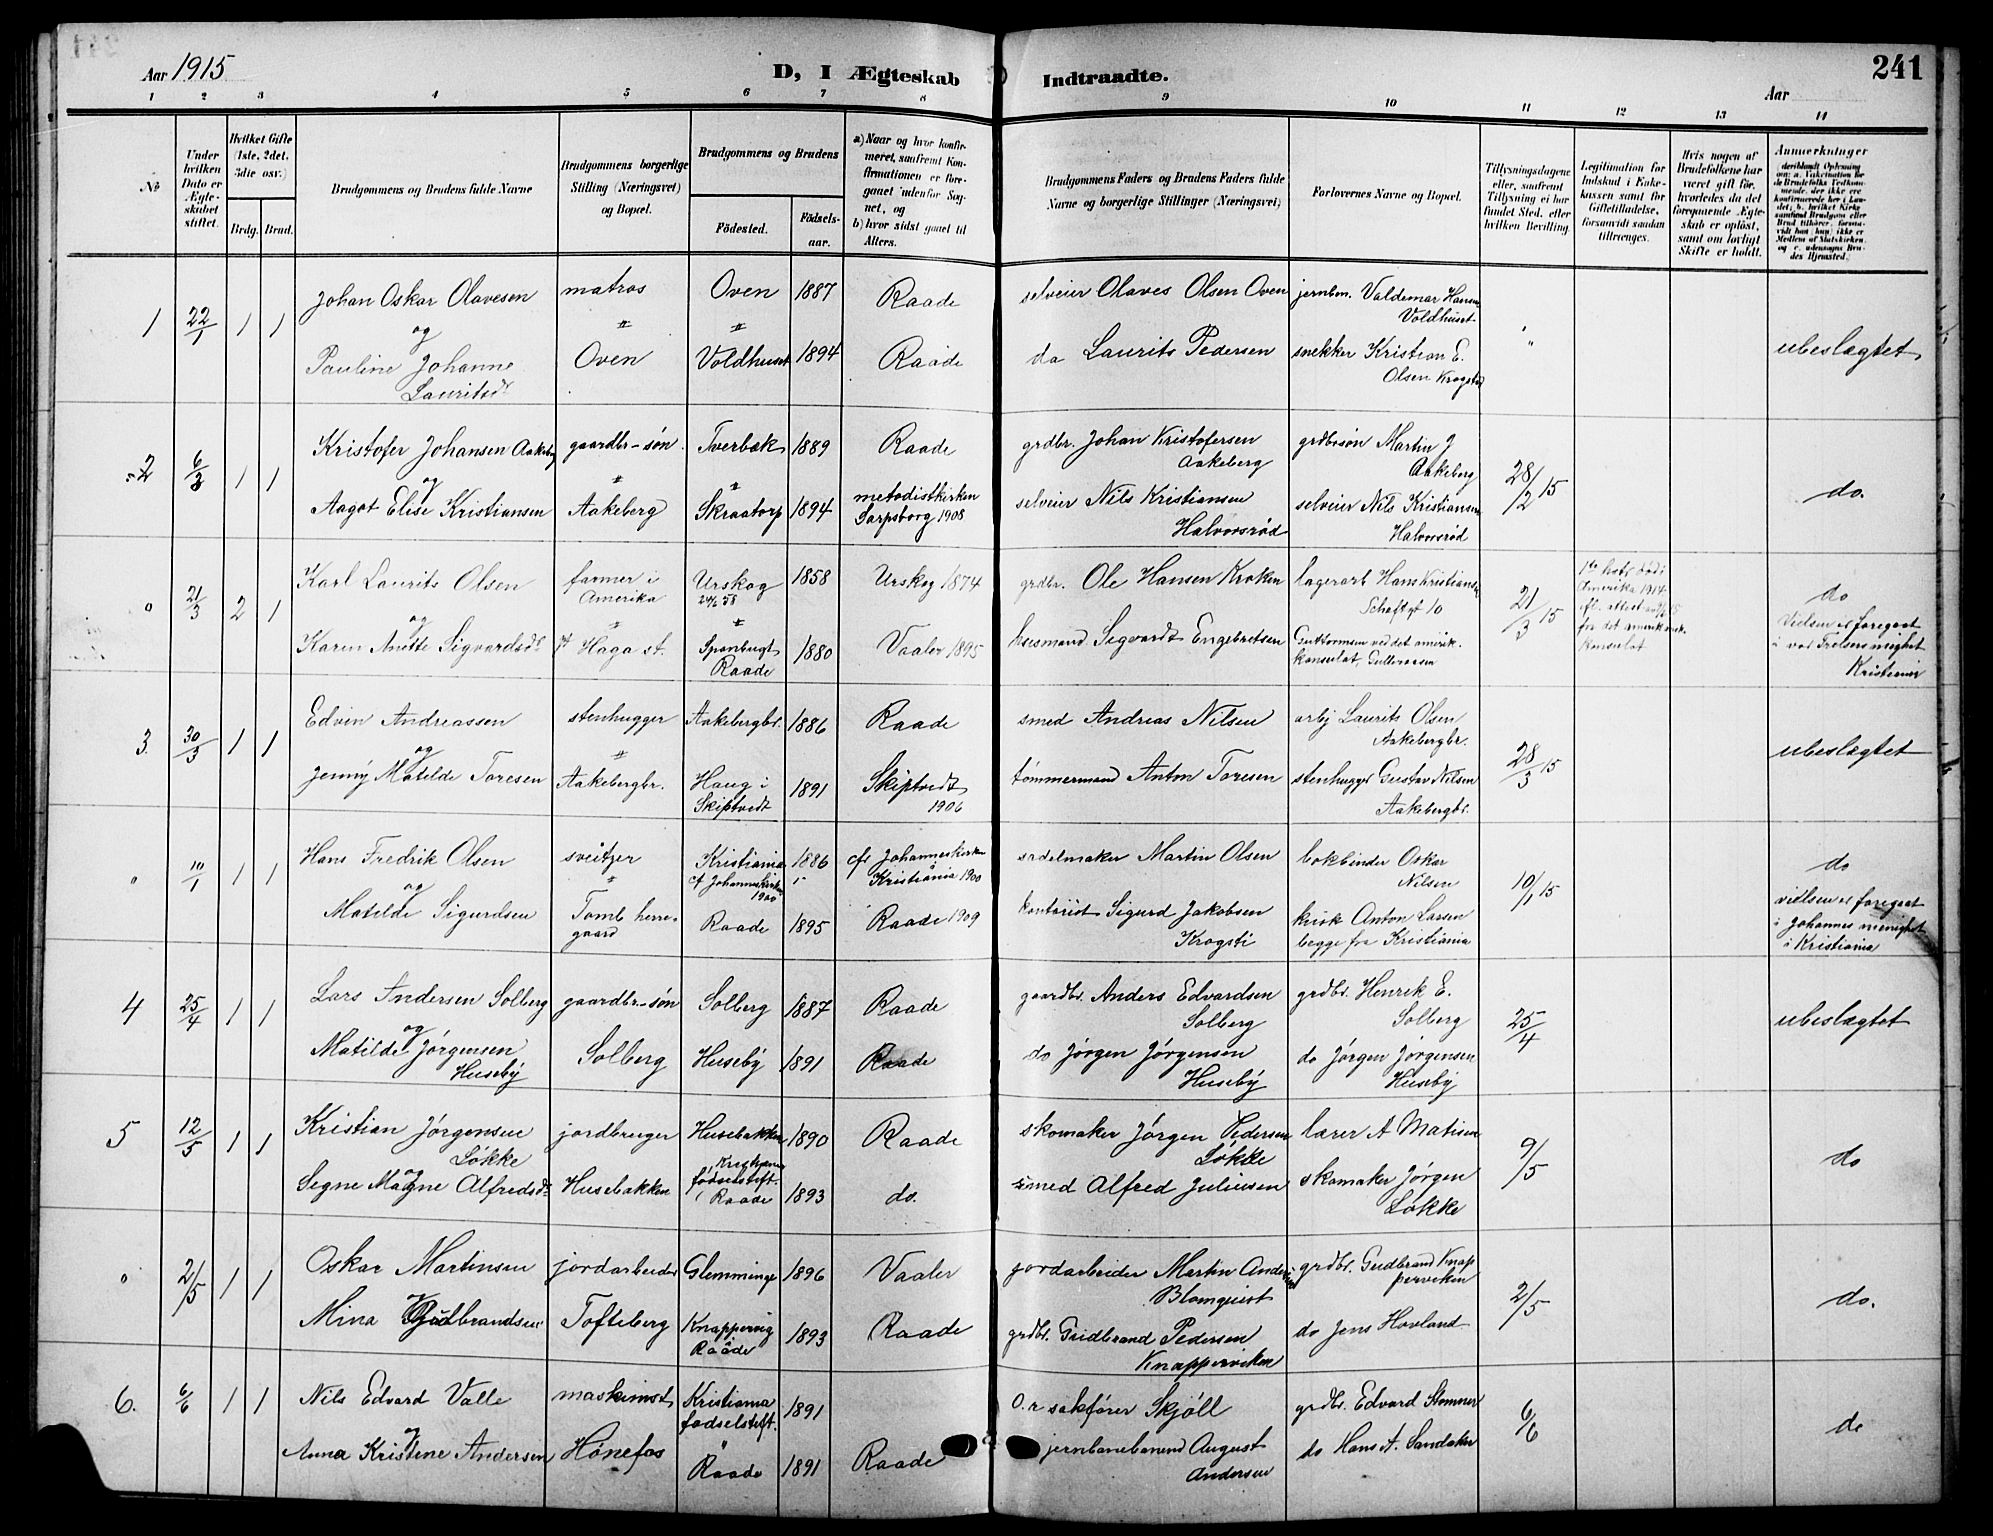 Aar 1915
D, I Ægteskab Indtraadte.
241
Aar
1 2 3 4 5 6 7 8 9 10 11 12 13 14
No
Under hvilken Dato er Ægteskabet stiftet.
Hvilket Gifte (1ste, 2det, 3die osv.)
Brdg. Brud.
Brudgommens og Brudens fulde Navne
Brudgommens borgerlige Stilling (Næringsvei) og Bopæl.
Brudgommens og Brudens
Fødested. Fødselsaar.
a) Naar og hvor konfirmeret, saafremt Konfirmationen er foregaaet udenfor Sognet, og
b) hvor sidst gaaet til Alters.
Brudgommens Faders og Brudens Faders fulde Navne og borgerlige Stillinger (Næringsvei)
Forlovernes Navne og Bopæl.
Tillysningsdagene eller, saafremt Tillysning ei har fundet Sted, efter hvilken Bevilling.
Legitimation for Indskud i Enkekassen samt for Giftetilladelse, forsaavidt saadan tiltrænges.
Hvis nogen af Brudefolkene har været gift før, hvorledes da det foregaaende Ægteskab er opløst, samt om lovligt Skifte er holdt.
Anmærkninger
1 22/1 1 1 Johan Oskar Olavesen matros Oven 1887 Raade selveier Olaves Olsen Oven jernbm. Valdemar Hansen Voldhuset
og
Pauline Johanne Lauritsdr Oven Voldhuset 1894 Raade do Laurits Pedersen snekker Kristian E. Olsen Krogstad ubeslægtet
2 6/3 1 1 Kristofer Johansen Aakeberg gaardbr-søn Tverbæk 1889 Raade grdbr. Johan Kristofersen Aakeberg grdbrsøn Martin J Aakeberg 28/12 15
og
Aagot Elise Kristiansen Aakeberg Skraatorp 1894 metodistkirken Sarpsborg 1908 selveier Nils Kristiansen Halvorsrød selveier Nils Kristiansen Halvorsrød do.
" 21/3 2 1 Karl Laurits Olsen farmer i Amerika Urskog 1858 Urskog 1874 grdbr. Ole Hansen Kroken lagerarb Hans Kristiansen 21/3 15 do
og
Karen Anette Sigvardsdr pt Haga st. Sponbugt Raade 1880 Vaaler 1895 husmand Sigvardt Engebretsen Kristiania
3. 30/3 1 1 Edvin Andreassen stenhugger Aakebergbr. 1886 Raade smed Andreas Nilsen arbj Laurits Olsen Aakebergbr. 28/3 15 ubeslægtet
og
Jenny Matilde Toresen Aakebergbr. Haug i Skiptvedt 1891 Skiptvedt 1906 tømmermand Anton Toresen stenhugger Gustav Nilsen Aakebergbr.
" 10/1 1 1 Hans Fredrik Olsen sveitzer Kristiania cf Johanneskirken 1900 1886 cf Johanneskirken Kristiania 1900 sadelmaker Martin Olsen bokbinder Oskar Nilsen 10/1 15 do
og
Matilde Sigurdsen Tomb herregaard Raade 1895 Raade 1909 kontorist Sigurd Jakobsen Krogsti kusk Anton Larsen begge fra Kristiania vielsen er foregaat i Johannes menighet i Kristiania
4 25/4 1 1 Lars Andersen Solberg gaardbr-søn Solberg 1887 Raade gaardbr. Anders Edvardsen Solberg grdbr. Henrik E. Solberg 25/4 ubeslægtet
og
Matilde Jørgensen Huseby Solberg Huseby 1891 Raade do Jørgen Jørgensen Huseby do Jørgen Jørgensen Huseby
5 12/5 1 1 Kristian Jørgensen Løkke jordbruger Husebakken 1890 Raade skomaker Jørgen Pedersen Løkke lærer A Matisen 9/5 do
og
Segne Magne Alfredsdr Husebakken Kristiania fødselstift. Raade 1893 do. smed Alfred Juliusen skomaker Jørgen Løkke
" 2/5 1 1 Oskar Martinsen jordarbeider Glemminge 1896 Vaaler jordarbeider Martin Andersen Blomquist grdbr. Gudbrand Knapperviken 2/5 do.
Mina Gudbrandsen Tofteberg Knappervig Raade 1893 Raade grdbr. Gudbrand Pedersen Knapperviken do Jens Hovland
6. 6/6 1 1 Nils Edvard Valle maskinist Kristiania fødselstift. 1891 O.r sakfører Skjöll grdbr. Edvard Stomner 6/6 do
og
Anna Kristine Andersen Hønefos Raade 1891 Raade jernbanebanend August Andersen do Hans A. Sandaker